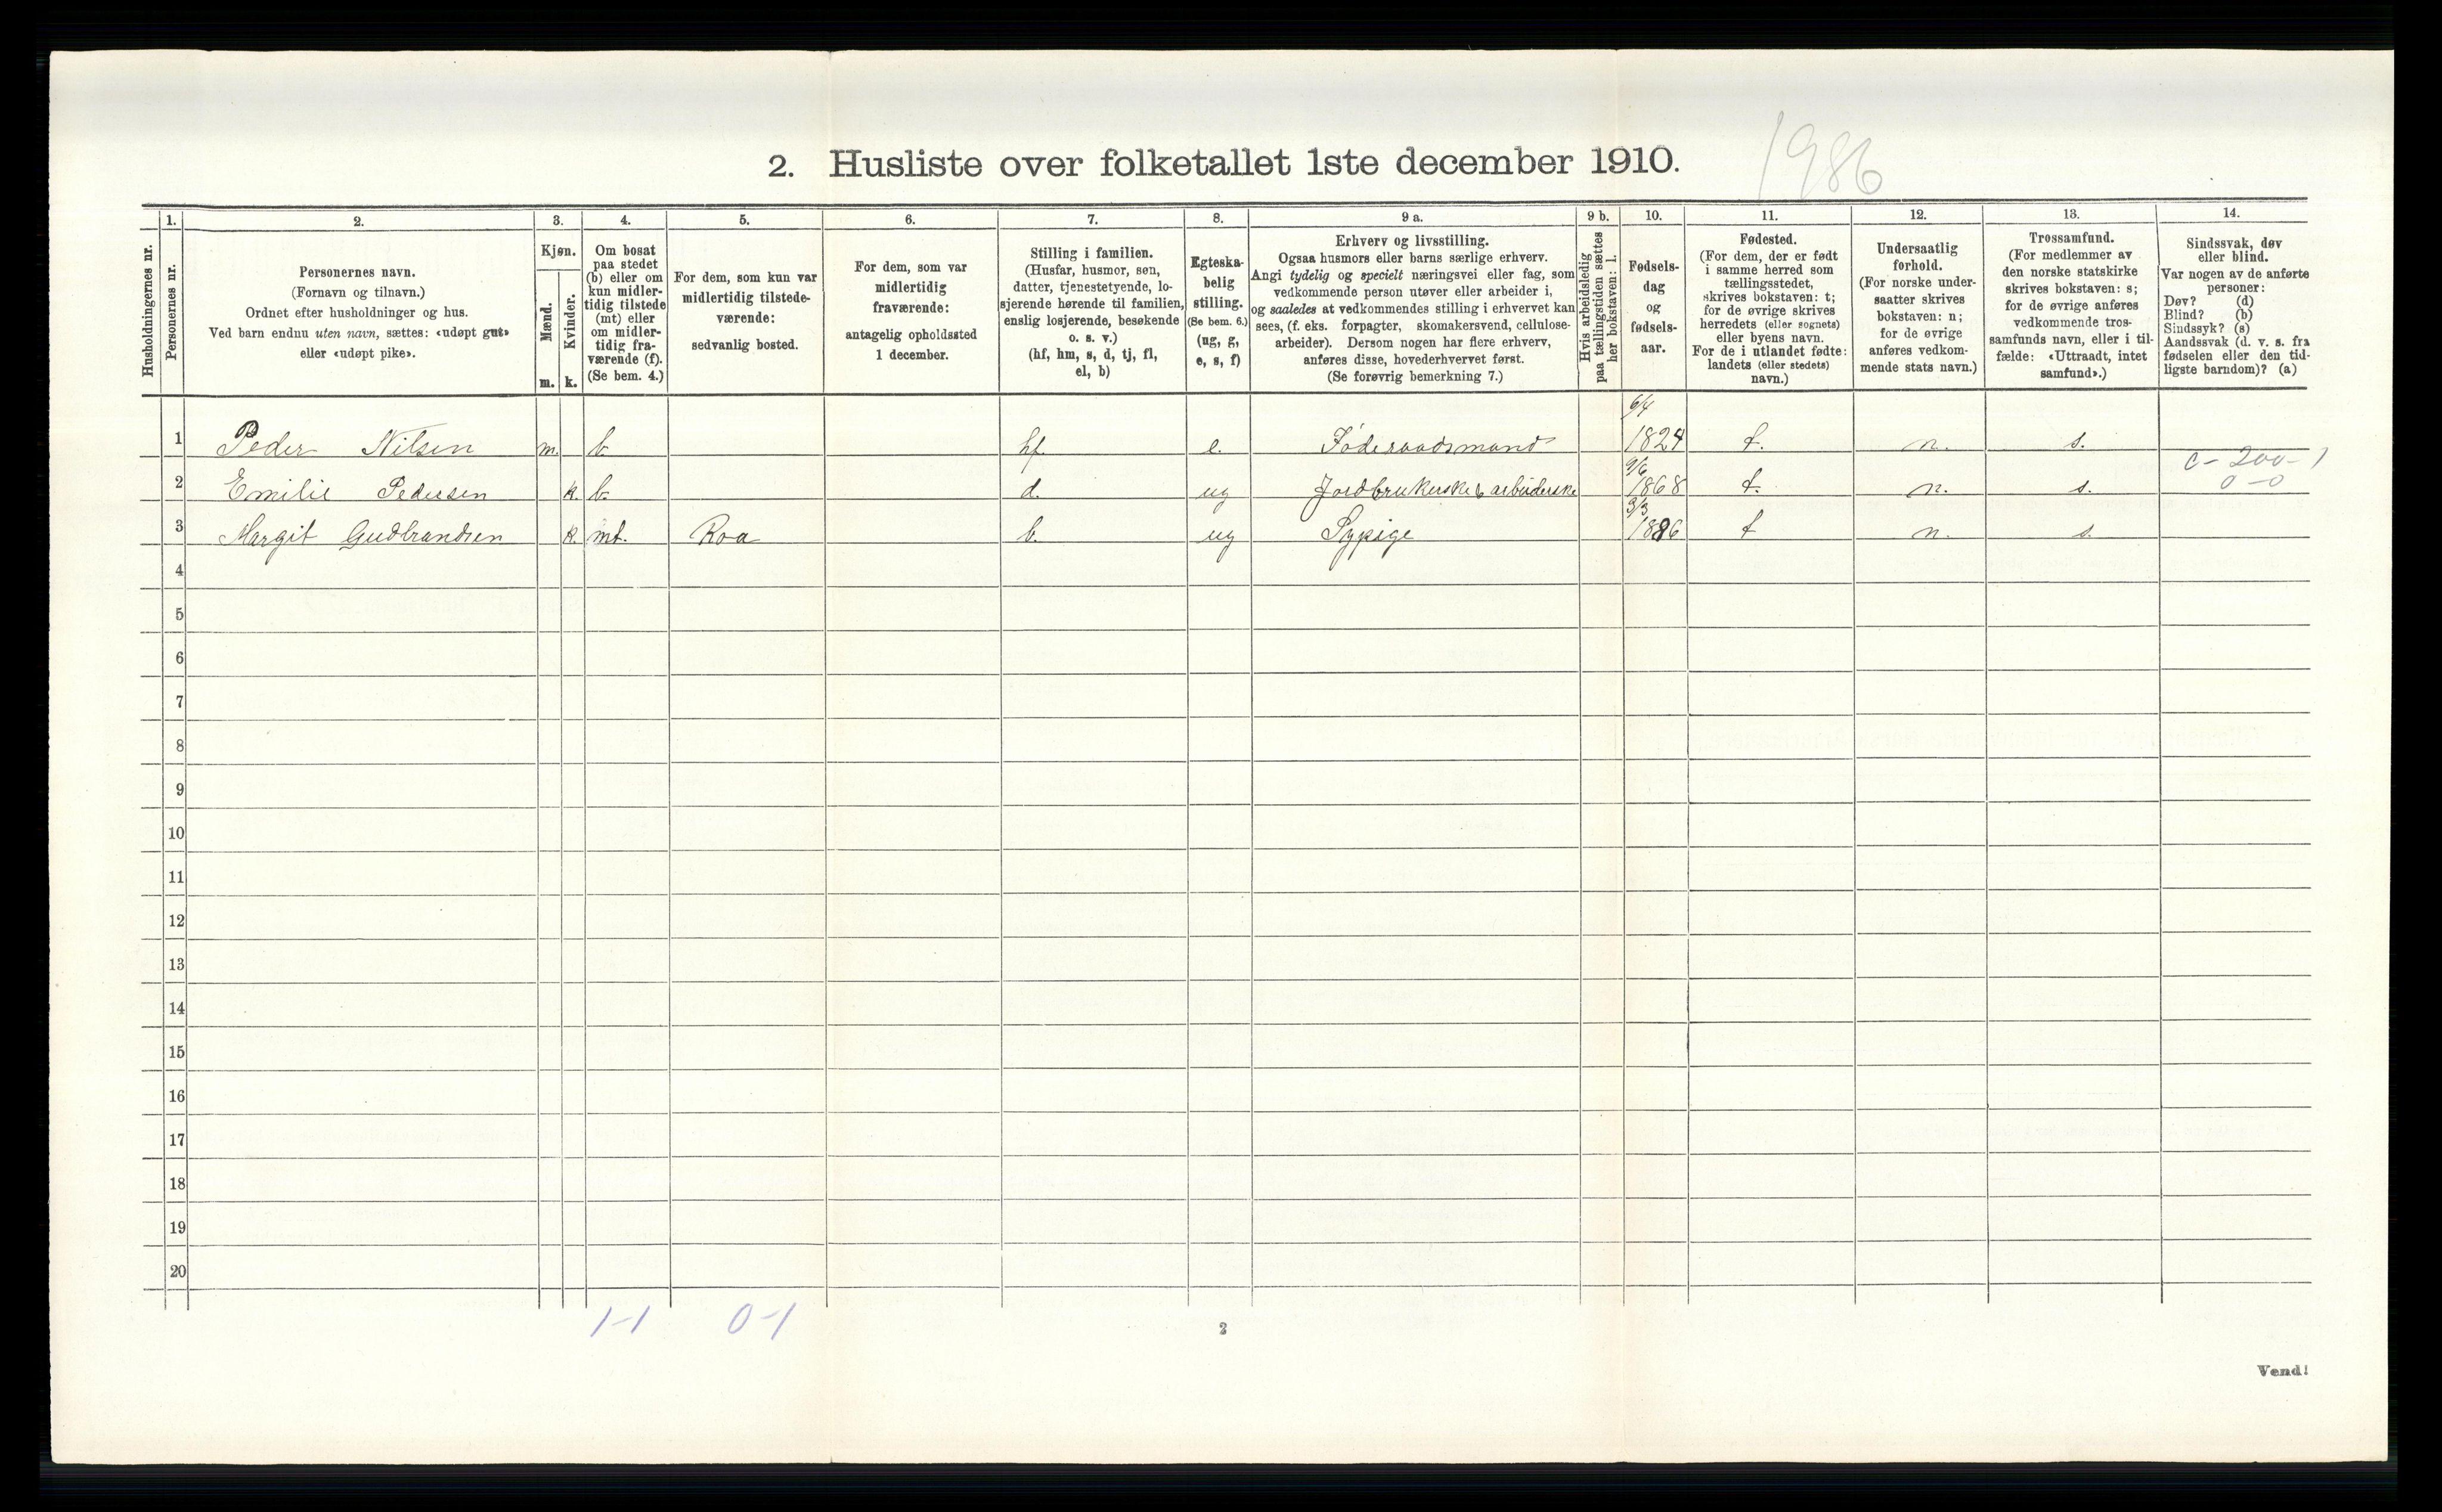 1986
2. Husliste over folketallet 1ste december 1910.
Husholdningernes nr.
1.
Personernes nr.
2.
Personernes navn.
(Fornavn og tilnavn.)
Ordnet efter husholdninger og hus.
Ved barn endnu uten navn, sættes: «udøpt gut»
eller «udøpt pike».
3.
Kjøn.
Mænd.
m.
Kvinder.
k.
4.
Om bosat
paa stedet
(b) eller om
kun midler-
tidig tilstede
(mt) eller
om midler-
tidig fra-
værende (f).
(Se bem. 4.)
5.
For dem, som kun var
midlertidig tilstede-
værende:
sedvanlig bosted.
6.
For dem, som var
midlertidig
fraværende:
antagelig opholdssted
1 december.
7.
Stilling i familien.
(Husfar, husmor, søn,
datter, tjenestetyende, lo-
sjerende hørende til familien,
enslig losjerende, besøkende
o. s. v.)
(hf, hm, s, d, tj, fl,
el, b)
8.
Egteska-
belig
stilling.
(Se bem. 6.)
(ug, g,
e, s, f)
9 a.
Erhverv og livsstilling.
Ogsaa husmors eller barns særlige erhverv.
Angi tydelig og specielt næringsvei eller fag, som
vedkommende person utøver eller arbeider i,
og saaledes at vedkommendes stilling i erhvervet kan
sees, (f. eks. forpagter, skomakersvend, cellulose-
arbeider). Dersom nogen har flere erhverv,
anføres disse, hovederhvervet først.
(Se forøvrig bemerkning 7.)
9 b.
Hvis arbeidsledig
paa tællingstiden sættes
her bokstaven: l.
10.
Fødsels-
dag
og
fødsels-
aar.
11.
Fødested.
(For dem, der er født
i samme herred som
tællingsstedet,
skrives bokstaven: t;
for de øvrige skrives
herredets (eller sognets)
eller byens navn.
For de i utlandet fødte:
landets (eller stedets)
navn.)
12.
Undersaatlig
forhold.
(For norske under-
saatter skrives
bokstaven: n;
for de øvrige
anføres vedkom-
mende stats navn.)
13.
Trossamfund.
(For medlemmer av
den norske statskirke
skrives bokstaven: s;
for de øvrige anføres
vedkommende tros-
samfunds navn, eller i til-
fælde: «Uttraadt, intet
samfund».)
14.
Sindssvak, døv
eller blind.
Var nogen av de anførte
personer:
Døv? (d)
Blind? (b)
Sindssyk? (s)
Aandssvak (d. v. s. fra
fødselen eller den tid-
ligste barndom)? (a)
1 Peder Nilsen m. b. hf. e. Føderaadsmand 6/4 1824 t. n. s.
2 Emilie Pedersen k. b. d. ug Jordbrukerske & arbeiderske 9/6 1868 t. n. s. c-200-1
0-0
3 Margit Gudbrandsen k. mt. Roa b. ug Sypige 3/3 1886 t n. s.
4
5
6
7
8
9
10
11
12
13
14
15
16
17
18
19
20
1-1 0-1
2
Vend!